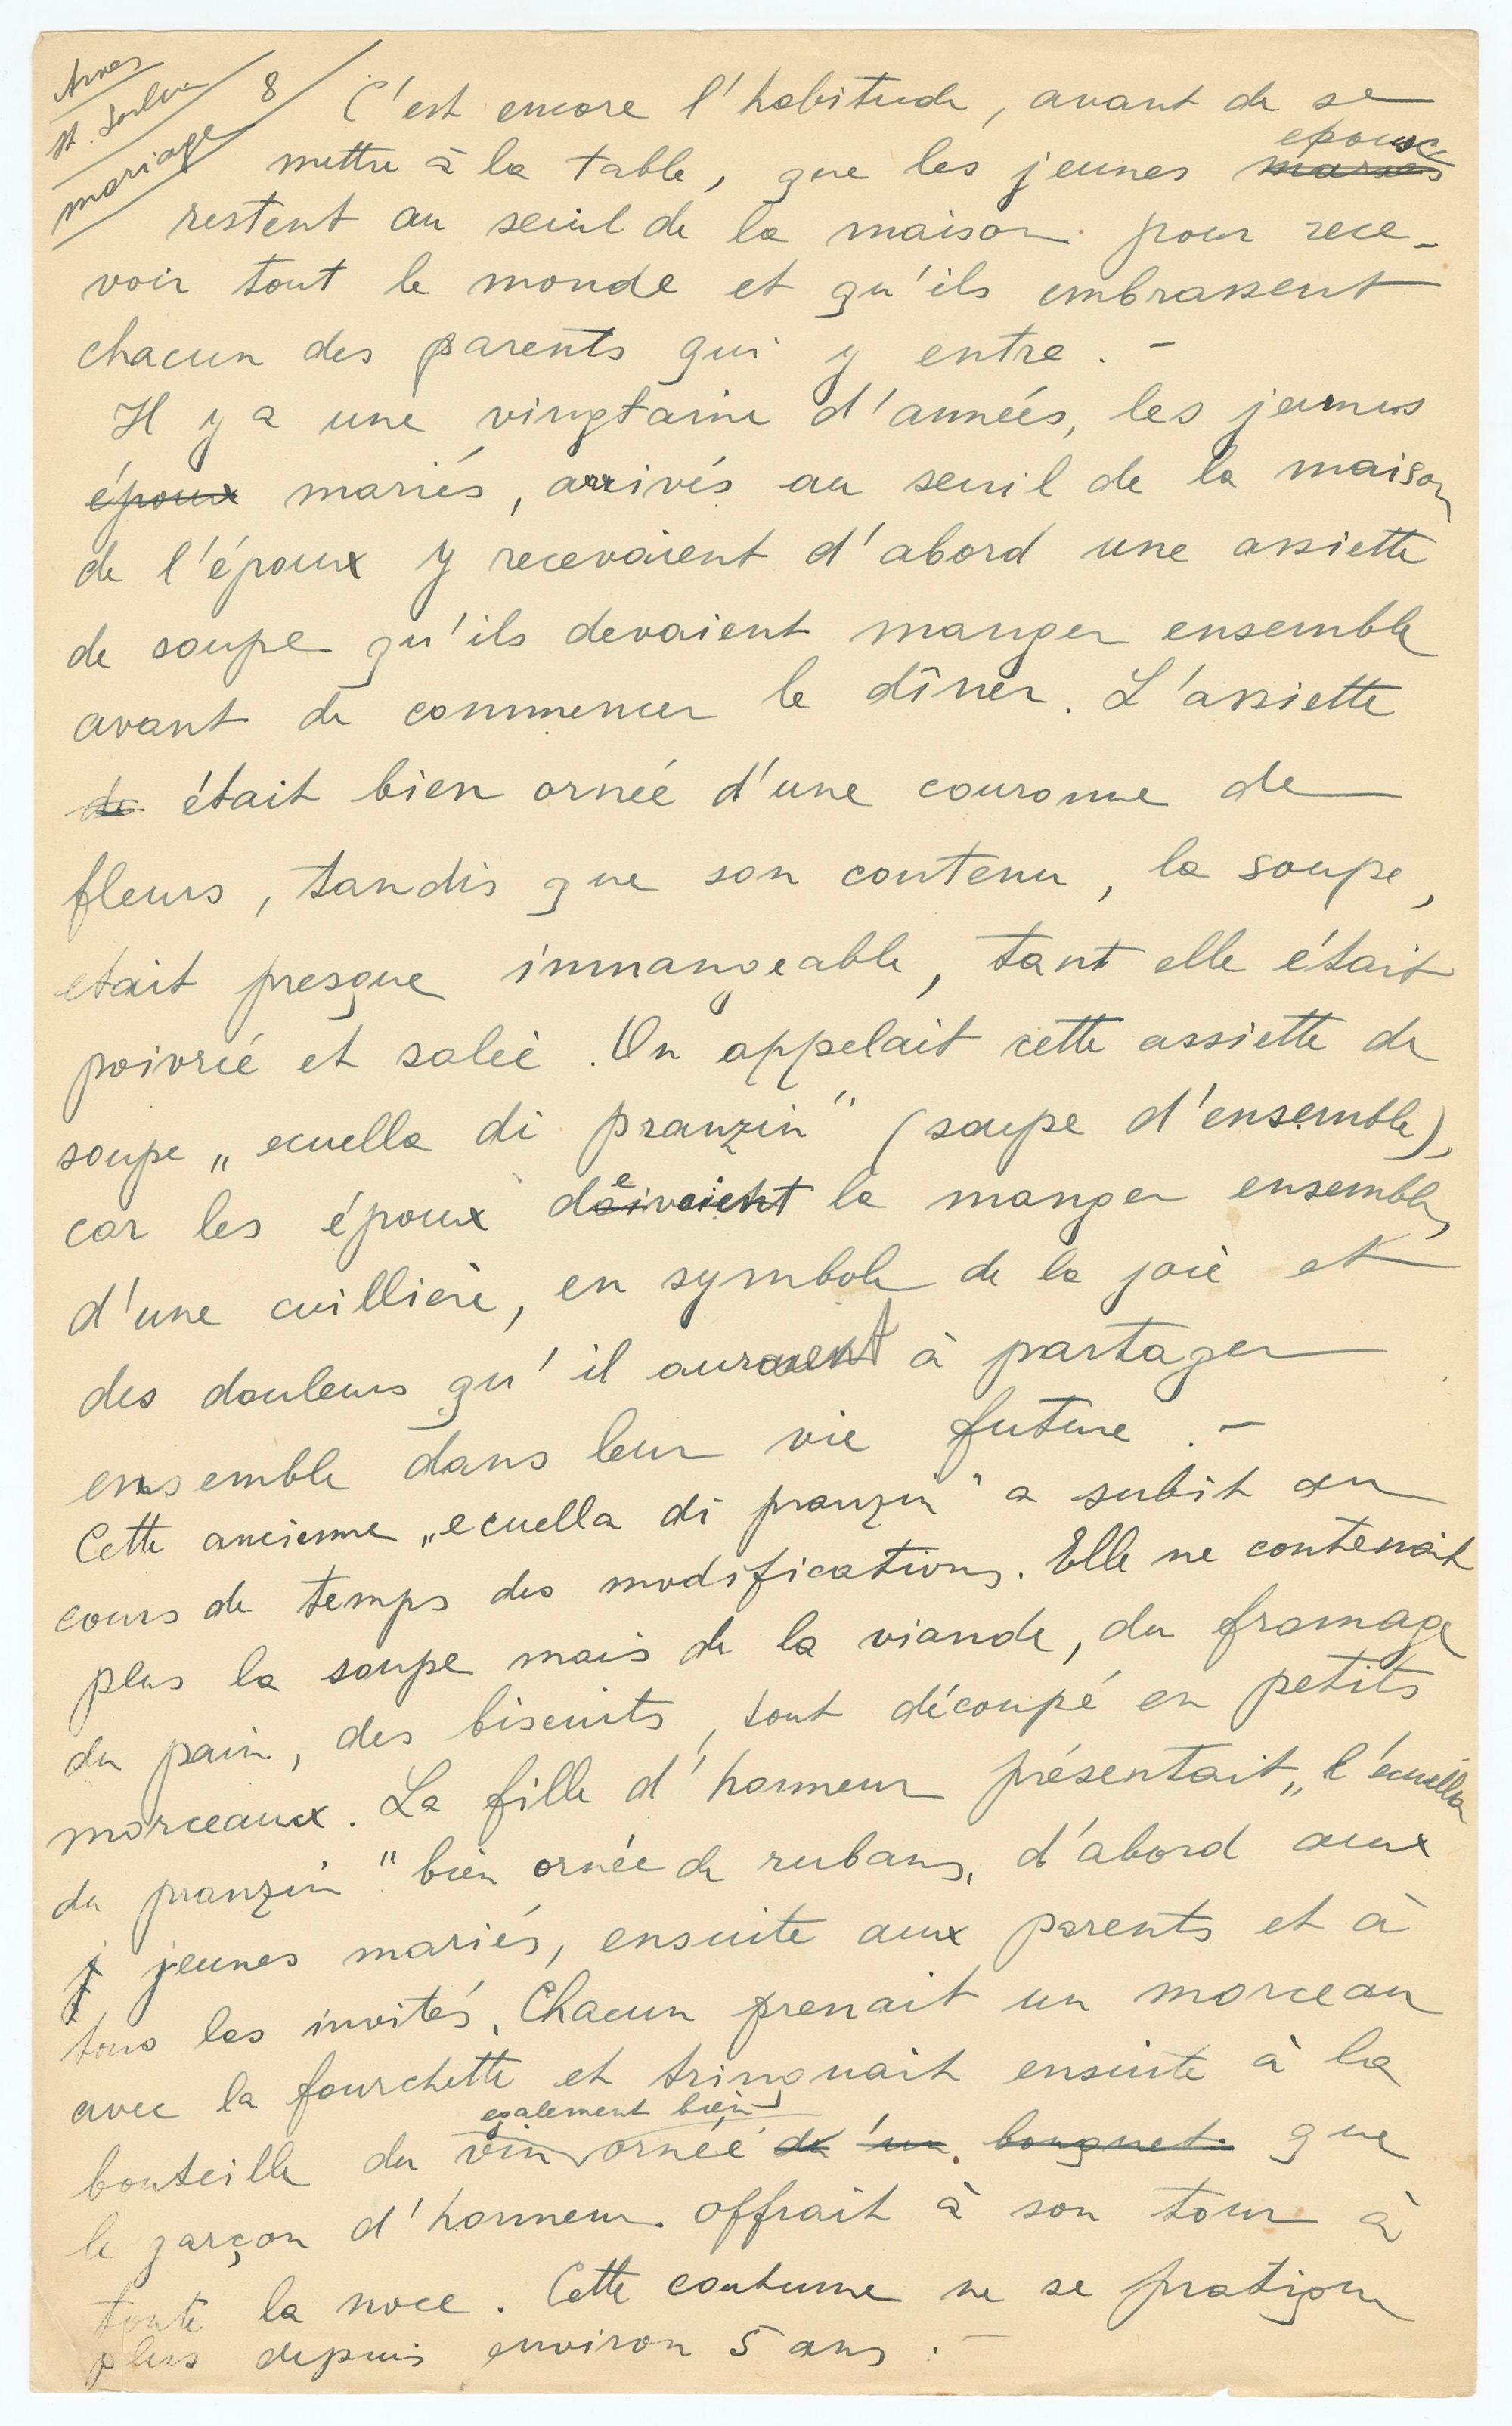 mariage
8
C'est encore l'habitude, avant de se
mettre à la table, que les jeunes ~~mariés~~ epouse
restent au seuil de la maison pour rece-
voir tout le monde et qu'ils embrassent
chacun des parents qui y entre. -
Il y a une vingtaine d'années, les jeunes
~~époux~~ mariés, arrivés au seuil de la maison
de l'époux y recevaient d'abord une assiette
de soupe qu'ils devaient manger ensemble
avant de commencer le dîner. L'assiette
~~de~~ était bien ornée d'une couronne de
fleurs, tandis que son contenu, la soupe,
etait presque immangeable, tant elle était
poivrée et salée. On appelait cette assiette de
soupe „ ecuella di pranzin" (soupe d'ensemble),
car les époux devaient la manger ensemble,
d'une cuillière, en symbole de la joie et
des douleurs qu'il auraient à partager
ensemble dans leur vie future. -
Cette ancienne „ecuella di pranzin" a subit au
cours de temps des modifications. Elle ne contenait
plus la soupe mais de la viande, du fromage
du pain, des biscuits, tout découpé en petits
morceaux. La fille d'honneur présentait „ l'écuella
du pranzin" bien ornée de rubans, d'abord aux
~~j~~ jeunes mariés, ensuite aux parents et à
tous les invités. Chacun prenait un morceau
avec la fourchette et trinquait ensuite à la
egalement bien
bouteille du vin ornée ~~de 'un bouquet~~ que
le garçon d'honneur. offrait à son tour à
toute la noce. Cette coutume ne se pratique
plus depuis environ 5 ans. -